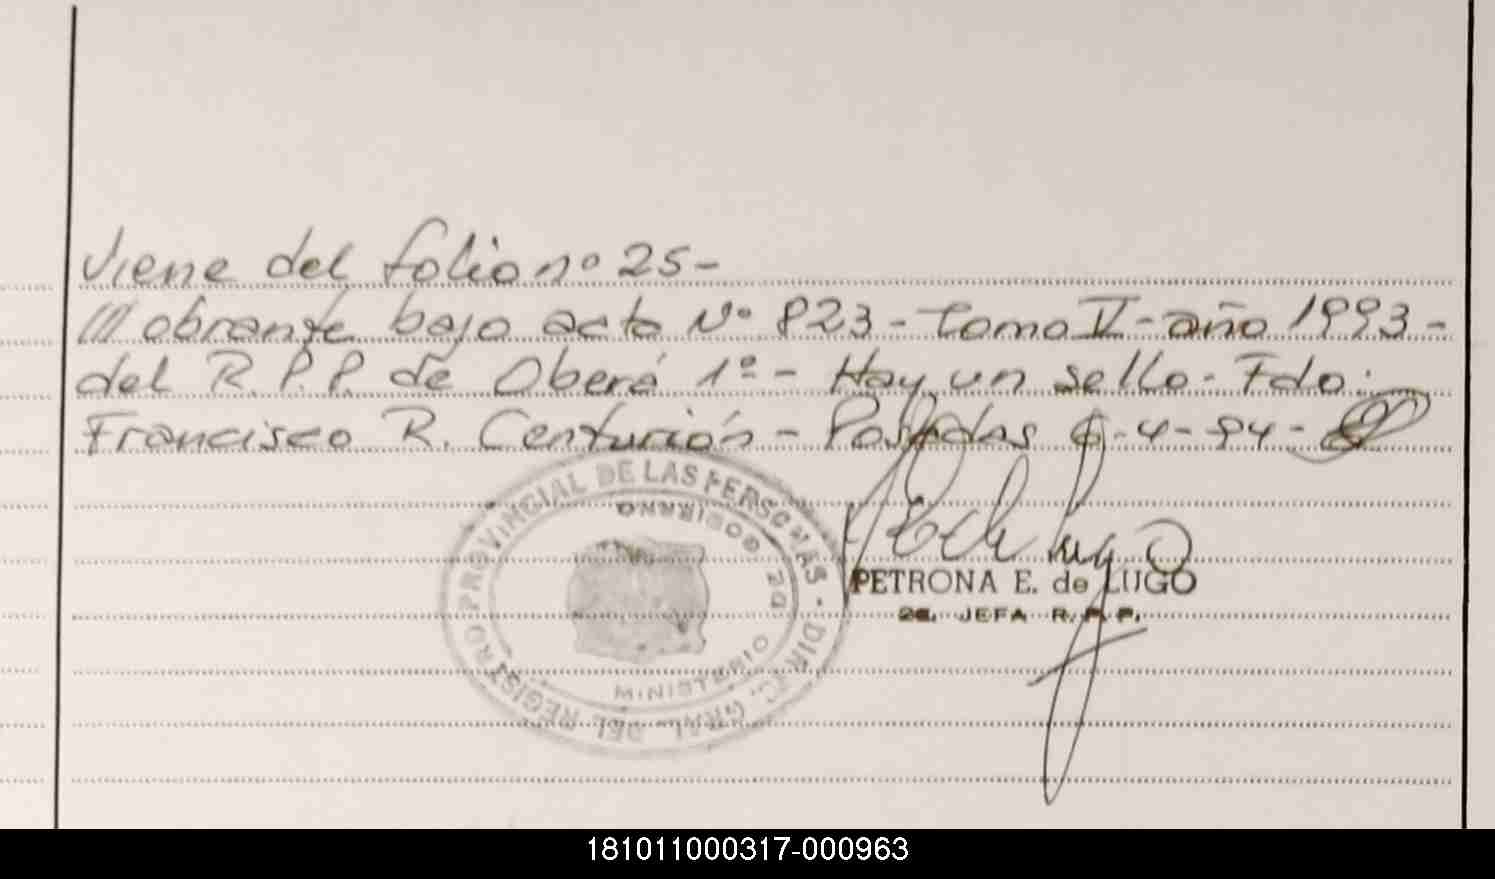 Viene del folio nº 25-
/// obrante bajo acta Nº 823 - Tomo V - año 1993 -
del R.P.P. de Oberá 1º - Hay un sello - Fdo:
Francisco R. Centurión - Posadas -4-94-
DIREC. GRAL. DEL REGISTRO PROVINCIAL DE LAS PERSONAS
MINISTERIO DE GOBIERNO
PETRONA E. de LUGO
2a. JEFA R.P.P.
181011000317-000963